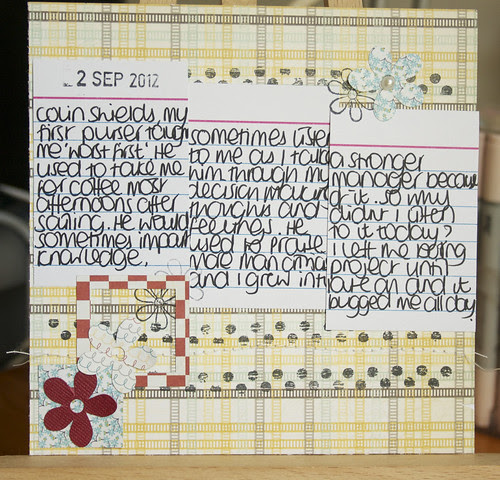 2 SEP 2012
colin shields, my
first purser taugh
me 'worst first'. He
used to take me
for coffee most
afternoons after
sailing. He would
sometimes impart
knowledge.
sometimes listen
to me as i talke
him through my
decision making
thoughts and
feelings. He
used to
more man
and i grew int
a stronger
manager because
of it. so why
didn't i listen
to it today?
i left me boring
project until
late on and it
bugged me all day.